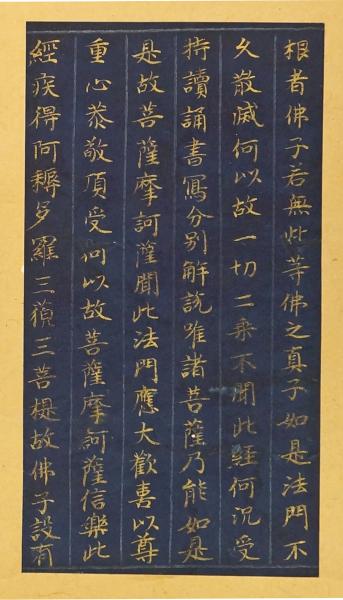 根者佛子若無此等佛之真子如是法門不
久散滅何以故一切二乘不聞此經何況受
持讀誦書寫分別解說唯諸菩薩乃能如是
是故菩薩摩訶薩聞此法門應大歡喜以尊
重心恭敬頂受何以故菩薩摩訶薩信樂此
經疾得阿耨多羅三藐三菩提故佛子設有